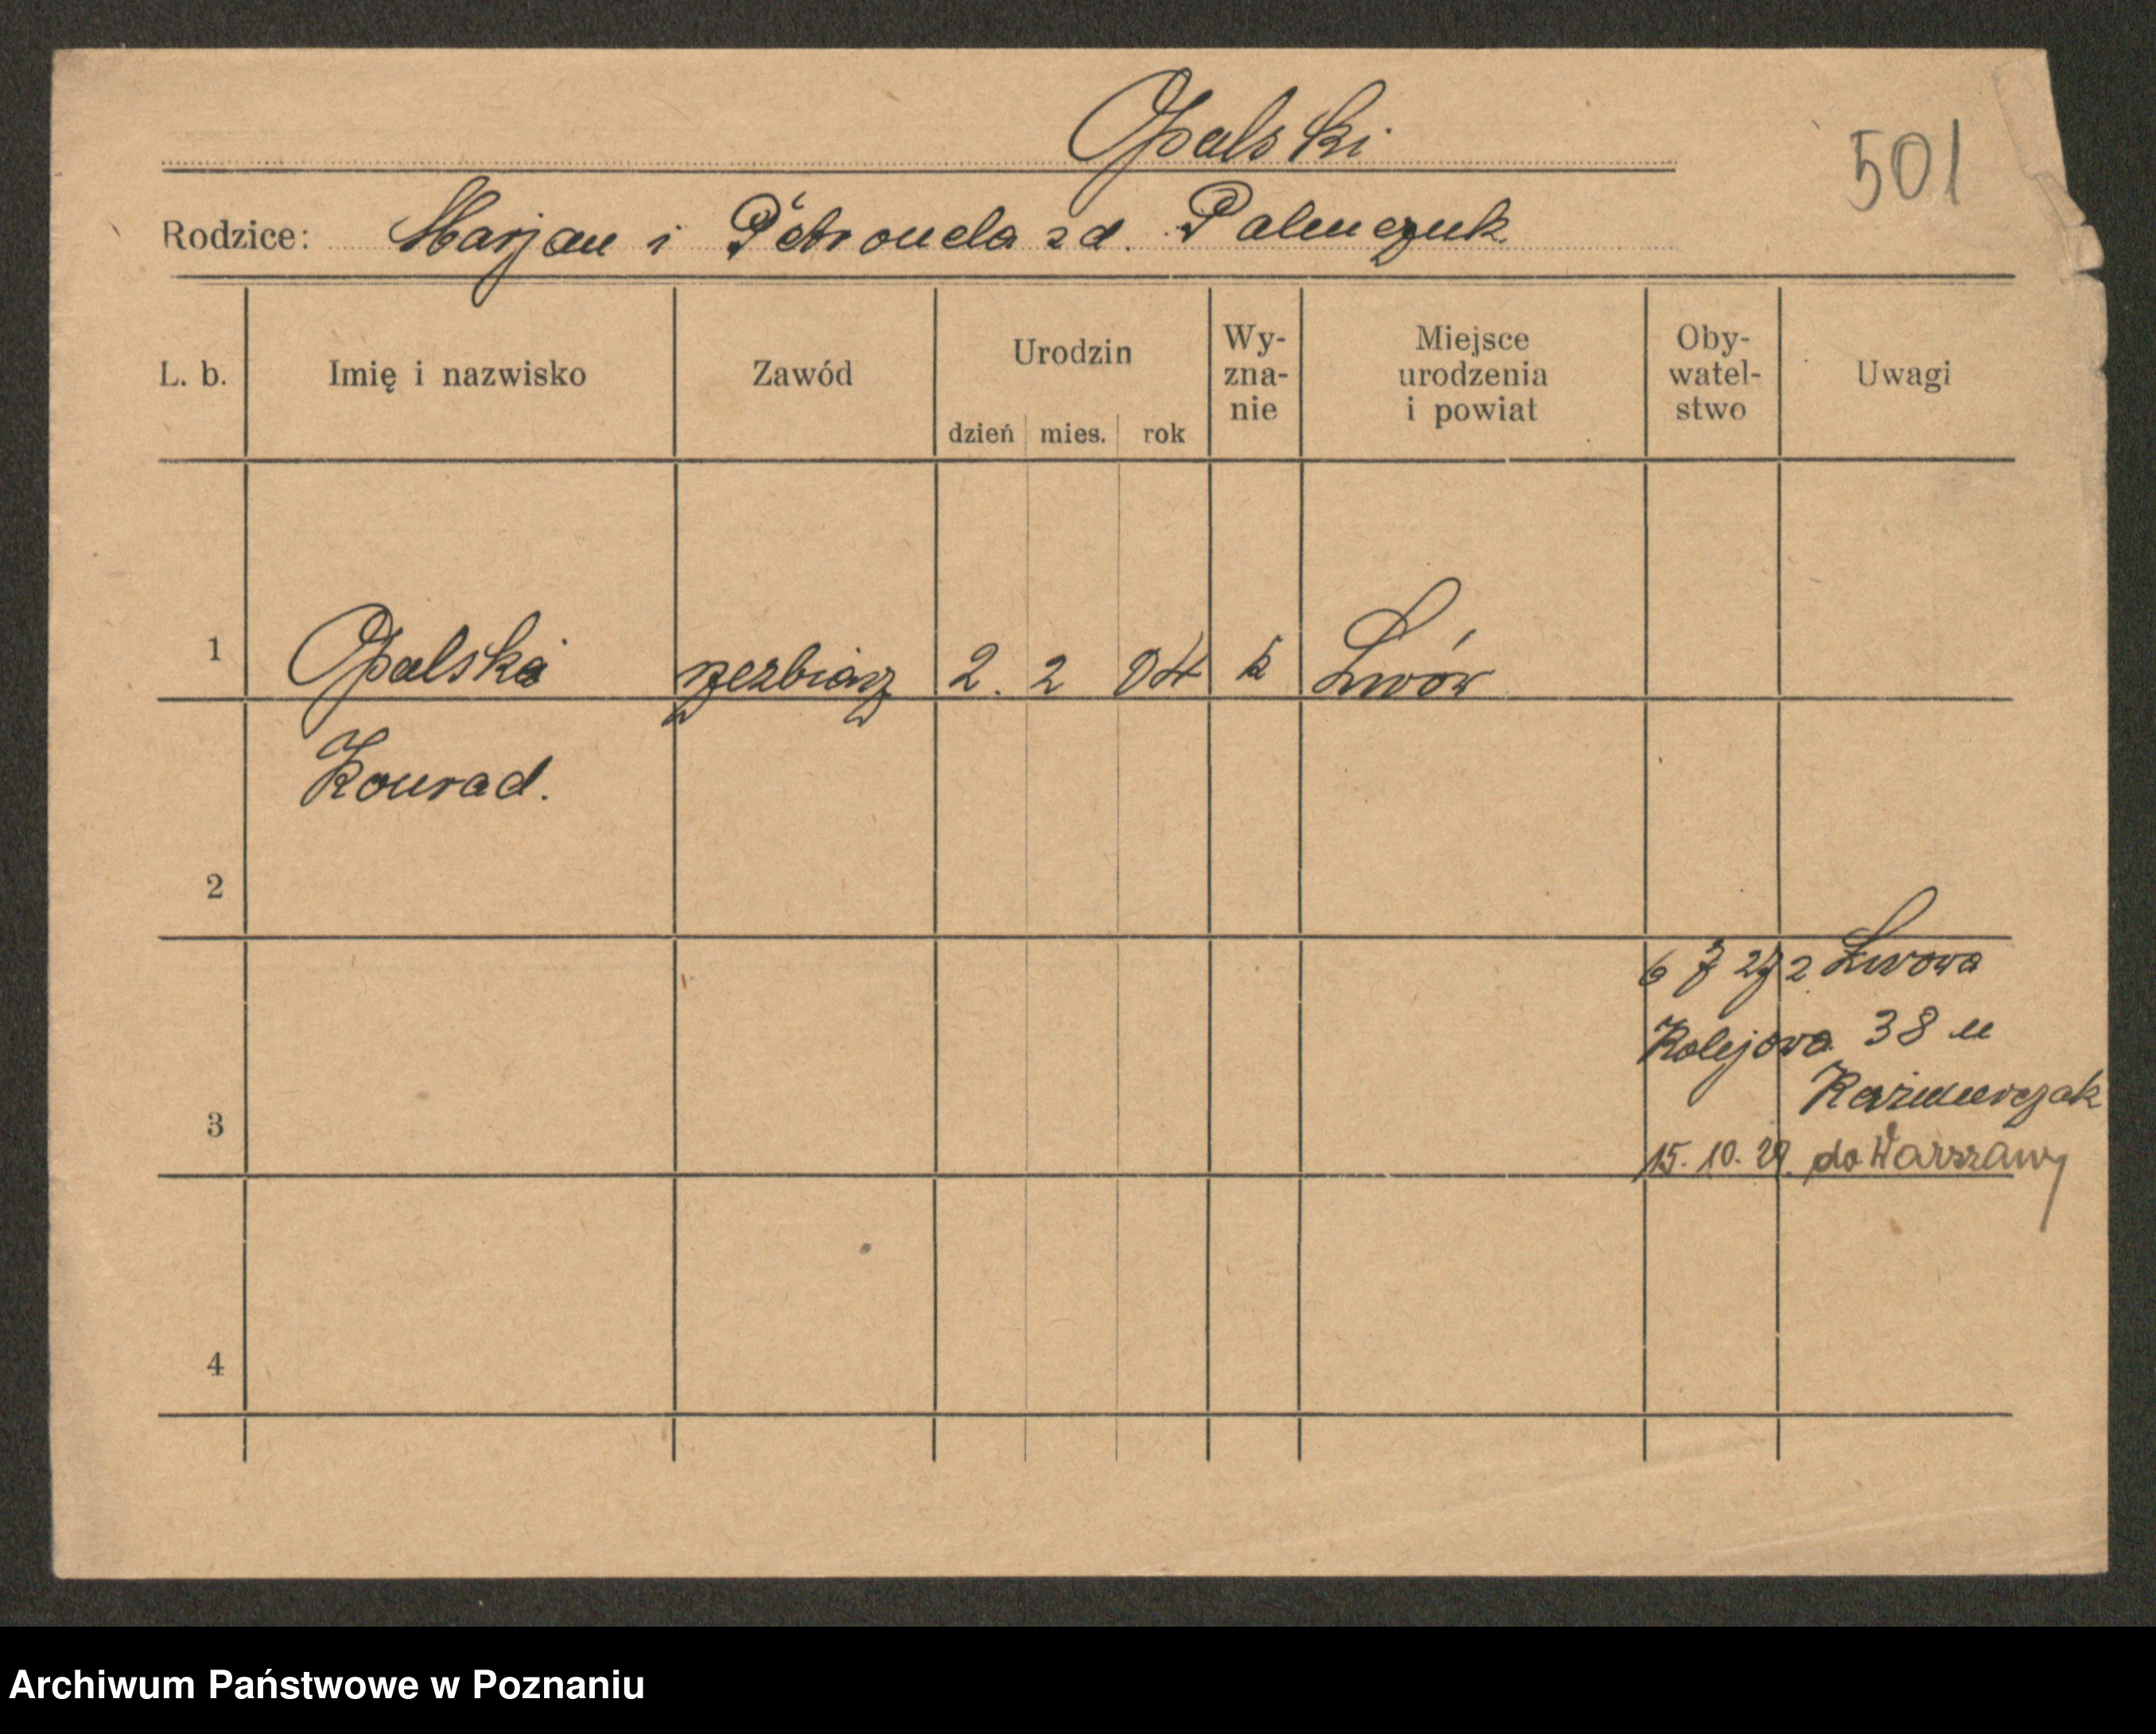 Opalski
501
Rodzice: Marjan i Petronela zd. Palmczuk
L. b. Imię i nazwisko Zawód Urodzin dzień mies. rok Wy-zna-nie Miejsce urodzenia i powiat Oby-watel-stwo Uwagi
1 Opalski rzeźbiarz 2. 2 04 k Lwów
Konrad.
2
6 7 27 z Lwowa
Kolejowa 38 u
Kaźmierczak
3
15. 10. 29. do Warszawy
4
Archiwum Państwowe w Poznaniu